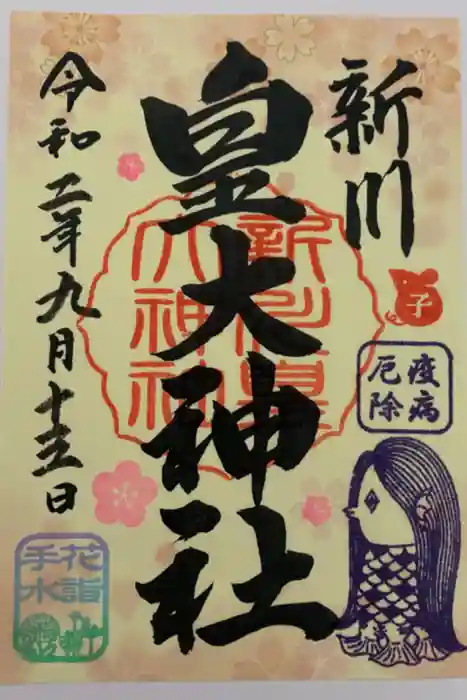 新川
皇大神社
令和二年九月十三日
新川皇
大神社
子
疫病
厄除
花詣
手水